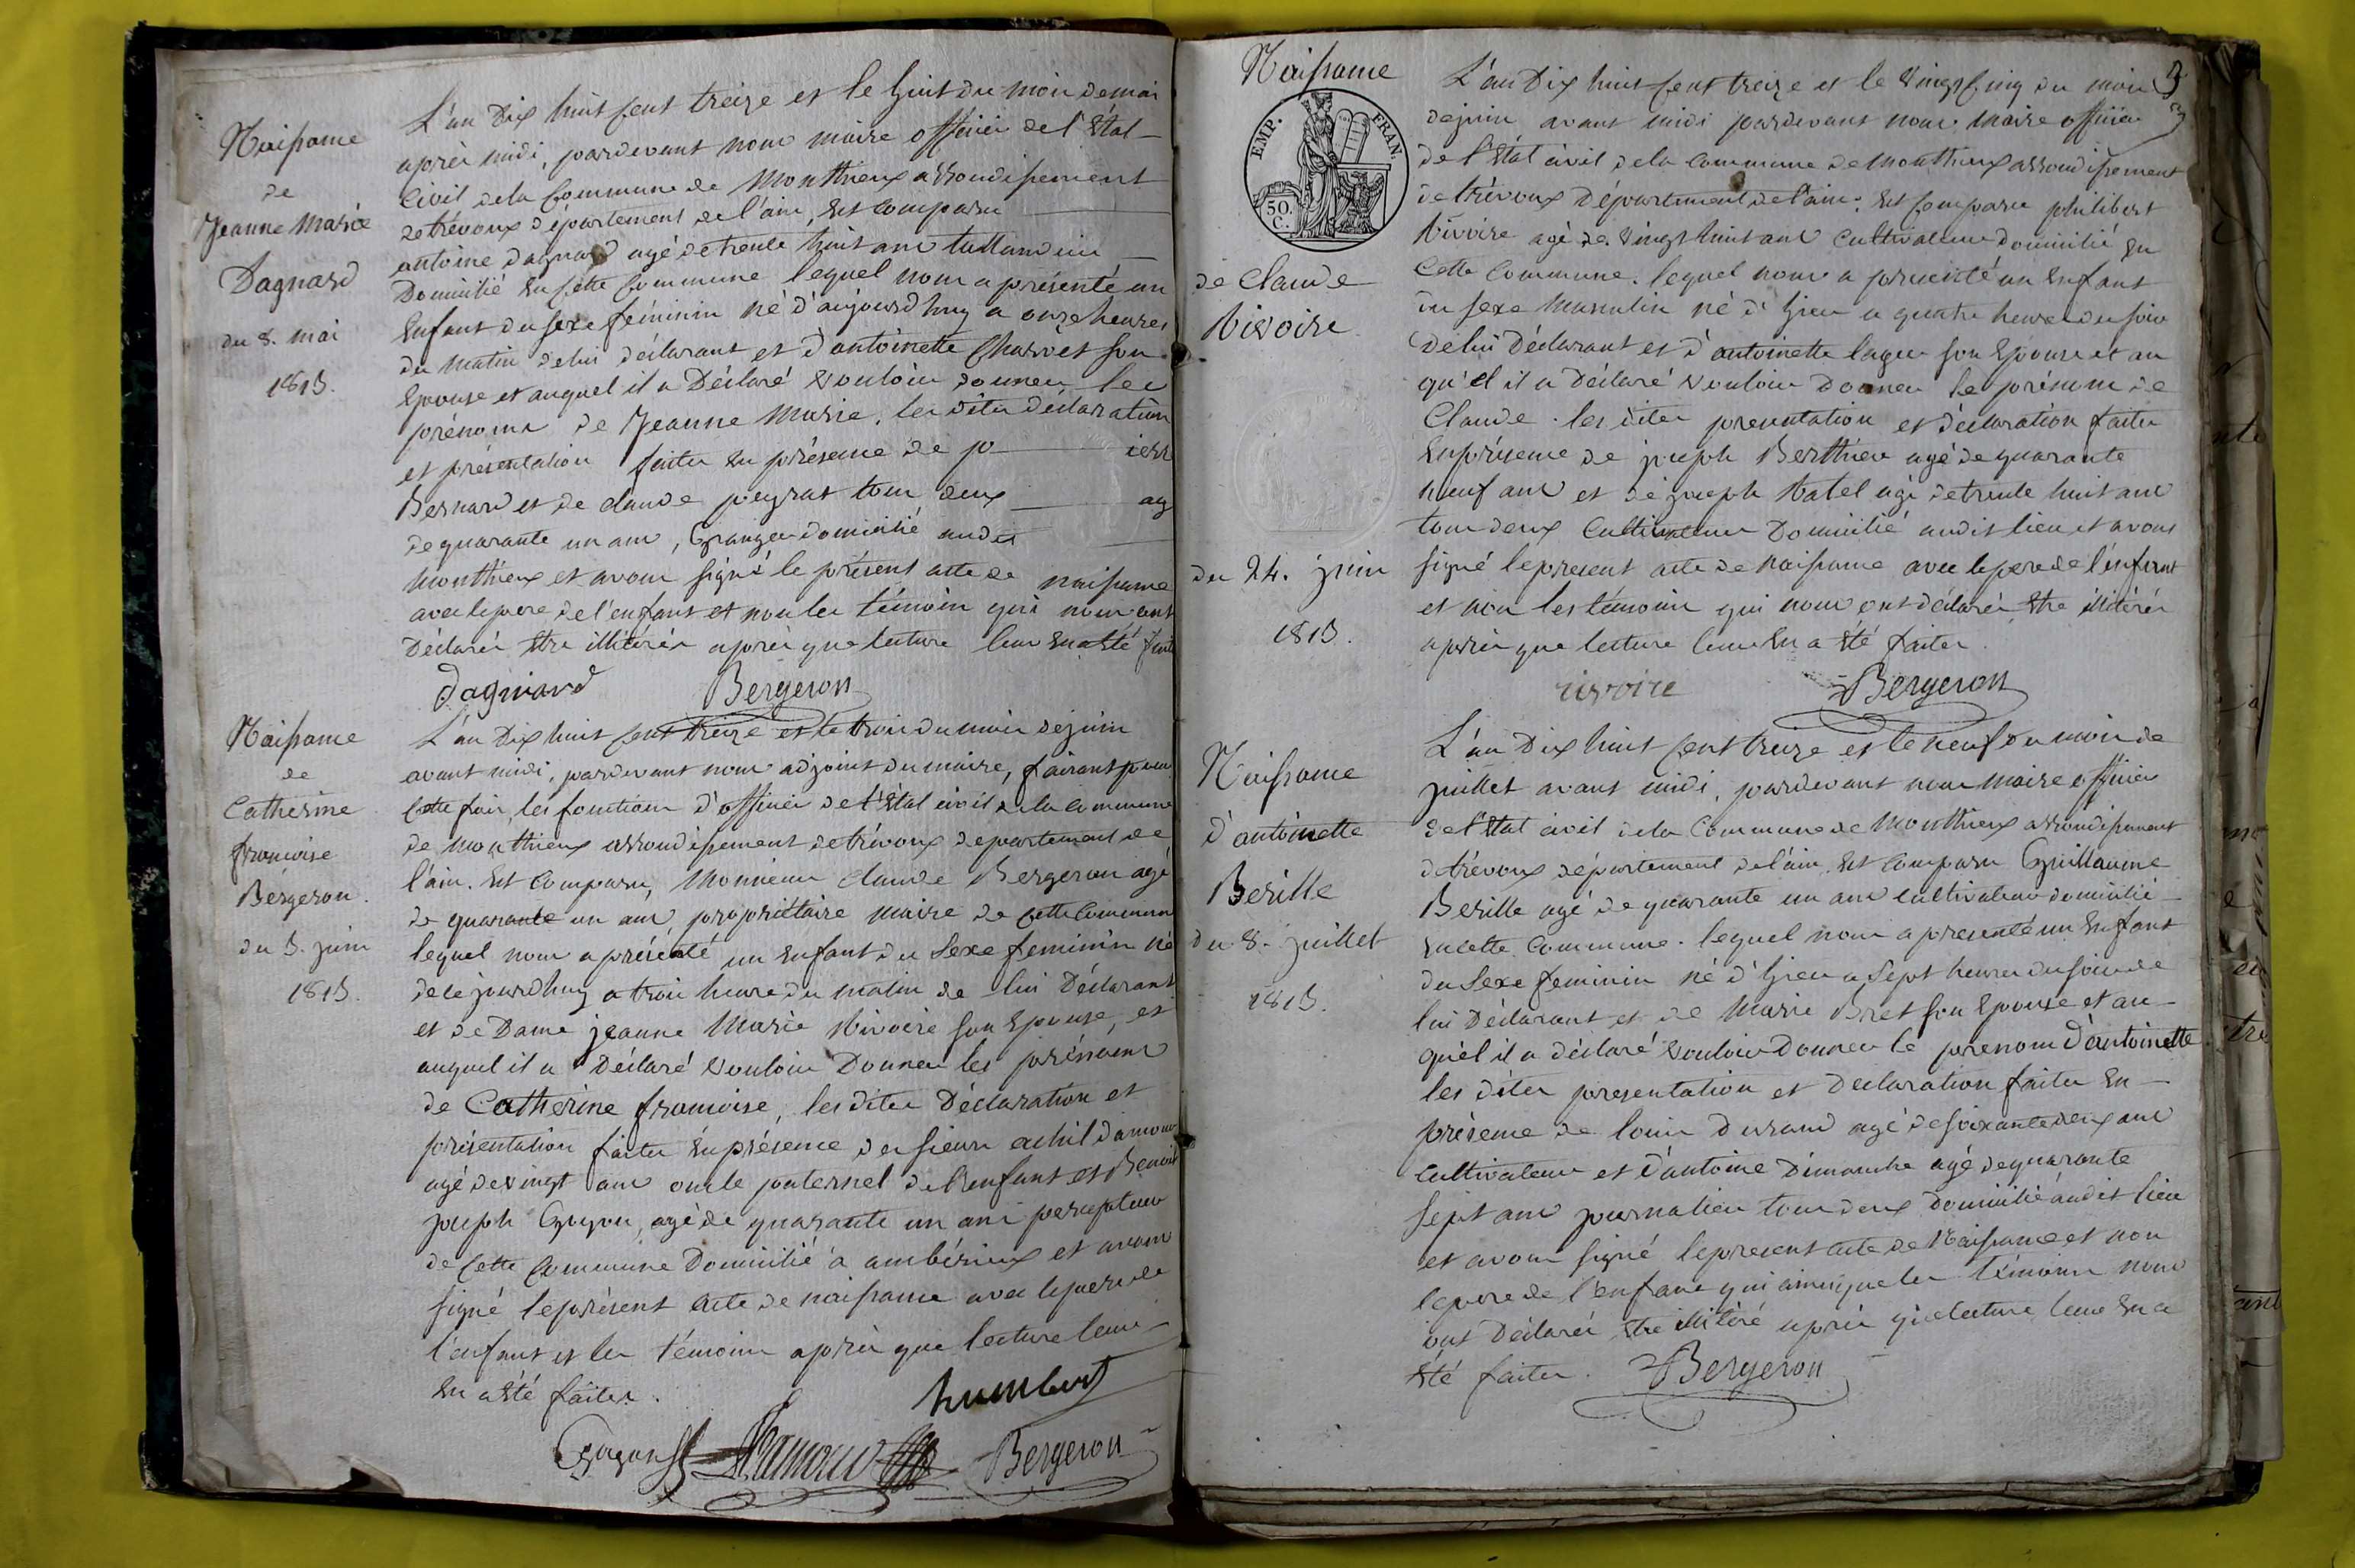 Naissance
de
Jeanne Marie
Dagnard
du 8. mai
1813.
L'an Dix huit cent treize et le huit du mois de mai
après midi, pardevant nous maire officier de l'Etat
Civil de la Commune de Monthieux arrondissement
de trévoux département de l'ain, Est comparu
antoine dagnard agé de trente huit ans
Domicilié En cette Commune lequel nous a présenté un
Enfant du sexe féminin né d'aujourdhuy a onze heures
du matin de lui déclarant et d'antoinette Charvet son
Epouse et auquel il a Déclaré Vouloir donner les
prénoms de Jeanne Marie, les dites déclaration
et présentation faites En présence de p ierr
Bernard et de claude peyrat tous deux ag
de quarante un ans, Granger domicilié audit
Monthieux et avons signé le présent acte de naissance
avec le père de l'enfant et non les témoins qui nous ont
Déclarés Etre illitérés après que lecture leur En a Eté faite
Dagniard Bergeron
Naissance
de
Catherine
francoise
Bergeron.
du 3. juin
1813.
L'an Dix huit cent treize et le trois du mois de juin
avant midi, pardevant nous adjoint du maire, faisant pour
cette fois, les fonctions d'officier de l'Etat civil de la commune
de Monthieux arrondissement de trévoux departement de
l'ain. Est Comparu, Monsieur claude Bergeron agé
de quarante un ans propriétaire maire de cette Commune
lequel nous a présenté un Enfant du Sexe feminin né
de ce jourdhuy a trois heures du matin de lui Déclarant
et de Dame jeanne Marie Rivoire son Epouse, et
auquel il a Déclaré Vouloir Donner les prénoms
de Catherine francoise, les dites Déclaration et
présentation faites En présence des sieurs achil damour
agé de vingt ans oncle paternel de l'enfant et Benoit
joseph Goyon, agé de quarante un ans percepteur
de cette Commune Domicilié à ambérieux et avons
signé le présent acte de naissance avec le père de
l'enfant et les témoins après que lecture leur
En a Eté faites.
humbert
Bergeron
Naissance
EMP. FRAN.
50. C.
de Claude
Rivoire
du 24. juin
1813.
3
L'an Dix huit cent treize et le Vingt cinq du mois
de juin avant midi pardevant nous maire officier
de l'Etat civil de la Commune de Monthieux arrondissement
de trévoux Département de l'ain. Est Comparu philibert
Rivoire agé de Vingt huit ans Cultivateur Domicilié En
Cette Commune. lequel nous a présenté un Enfant
du sexe Masculin né d'hier a quatre heures du soir
de lui Déclarant et d'antoinette son Epouse et au
qu'el il a Déclaré Vouloir Donner le prénom de
Claude. les dites presentation et déclaration faites
En présence de joseph Berthier agé de quarante
neuf ans et de joseph Ratel agé de trente huit ans
tous deux Cultivateurs Domicilié audit lieu et avons
signé le present acte de naissance avec le pere de l'enfant
et non les témoins qui nous ont déclarés Etre illitérés
après que lecture leur En a Eté faites.
rivoire Bergeron
Naissance
d'antoinette
Berille
du 8. juillet
1813.
L'an Dix huit cent treize et le neuf du mois de
juillet avant midi, pardevant nous maire officier
de l'Etat civil de la Commune de Monthieux arrondissement
de trévoux département de l'ain. Est Comparu Guillaume
Berille agé de quarante un ans Cultivateur domicilié
En cette Commune. lequel nous a presenté un Enfant
du Sexe feminin né d'hier a Sept heures du soir de
lui Déclarant et de Marie Bret son Epouse et au
qu'el il a déclaré Vouloir Donner le prenom d'antoinette
les dites presentation et Declaration faites En
présence de louis Durand agé de soixante deux ans
Cultivateur et d'antoine Dimanche agé de quarante
sept ans journalier tous deux Domicilié audit lieu
et avons signé le present acte de Naissance et non
le pere de l'enfant qui ainsi que les témoins nous
ont Déclarés Etre illitéré après que lecture leur En a
Eté faites. Bergeron